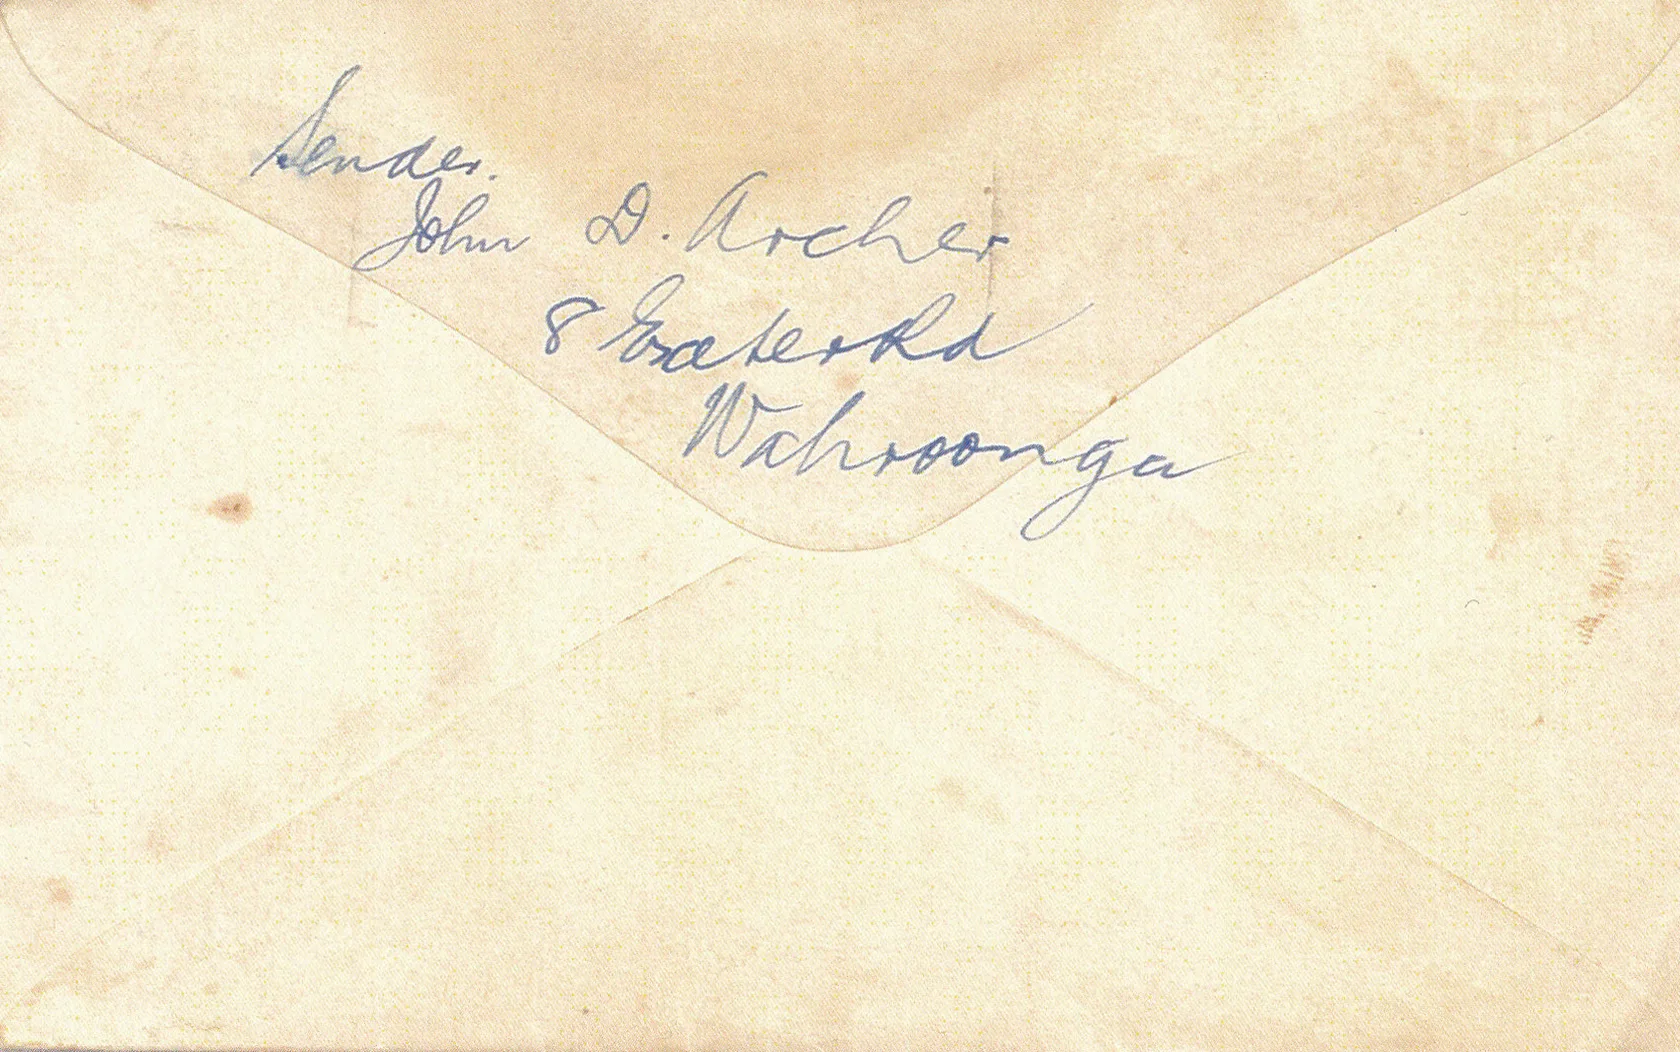 Sender.
John D. Archer
8 Exeter Rd
Wahroonga